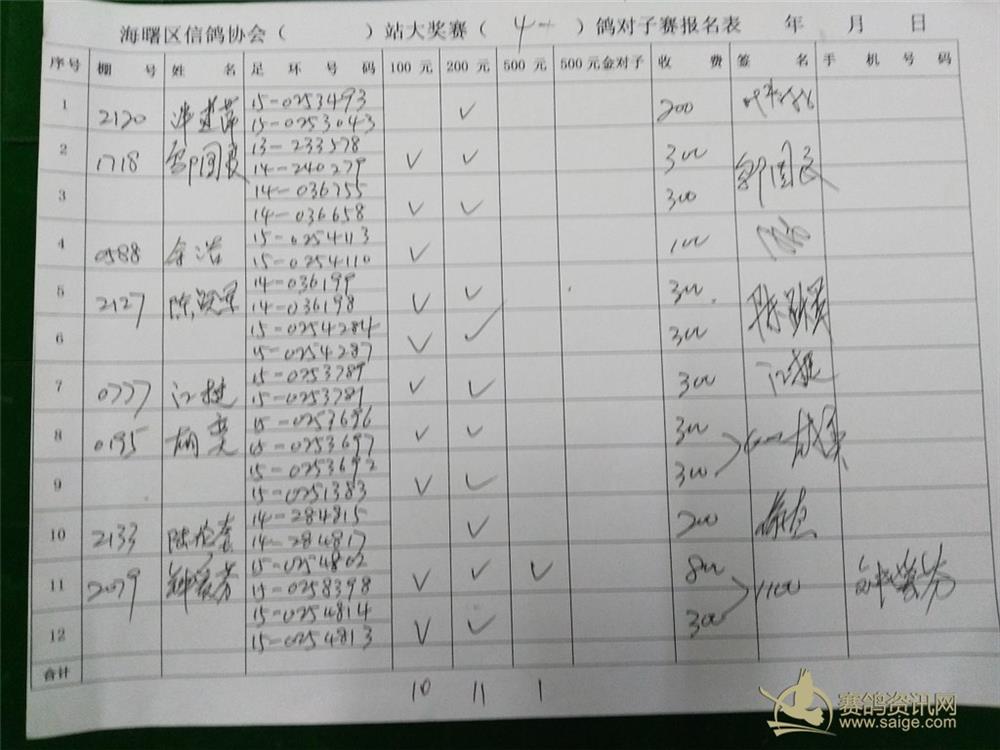 海曙区信鸽协会( )站大奖赛( 4一 )鸽对子赛报名表 年 月 日
序号 棚号 姓名 足环号码 100元 200元 500元 500元金对子 收费 签名 手机号码
1 2120 15-0253493 ✓ 200
15-0253043
2 1718 邹国良 13-233578 ✓ ✓ 300 邹国良
14-240279
3 14-036755 ✓ ✓ 300
14-036658
4 0588 余浩 15-0254113 ✓ 100
15-0254110
5 2127 陈颖军 14-036199 ✓ ✓ 300 陈颖军
14-036198
6 15-0254284 ✓ ✓ 300
15-0254287
7 0777 江挺 15-0253789 ✓ ✓ 300 江挺
15-0253781
8 0195 15-0253696 ✓ ✓ 300
15-0253697
9 15-0253692 ✓ ✓ 300
15-0251383
10 2133 14-284815 ✓ 200
14-284817
11 2079 15-0254802 ✓ ✓ ✓ 800 1100
15-0258398
12 15-0254814 ✓ ✓ 300
15-0254813
合计
10 11 1
赛鸽资讯网
www.saige.com